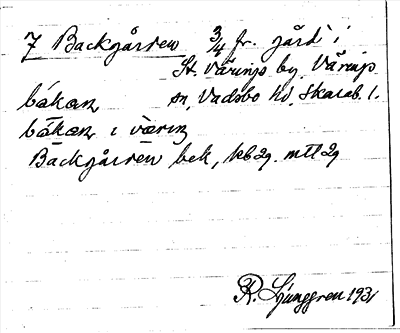 7 Backgården 3/4 fr. gård i
St. Värings by, Värings
sn, Vadsbo hd, Skarab. l.
bákan
bákan i væriŋ
Backgården bek, kb 29. mtl 29
R. Ljunggren 1931